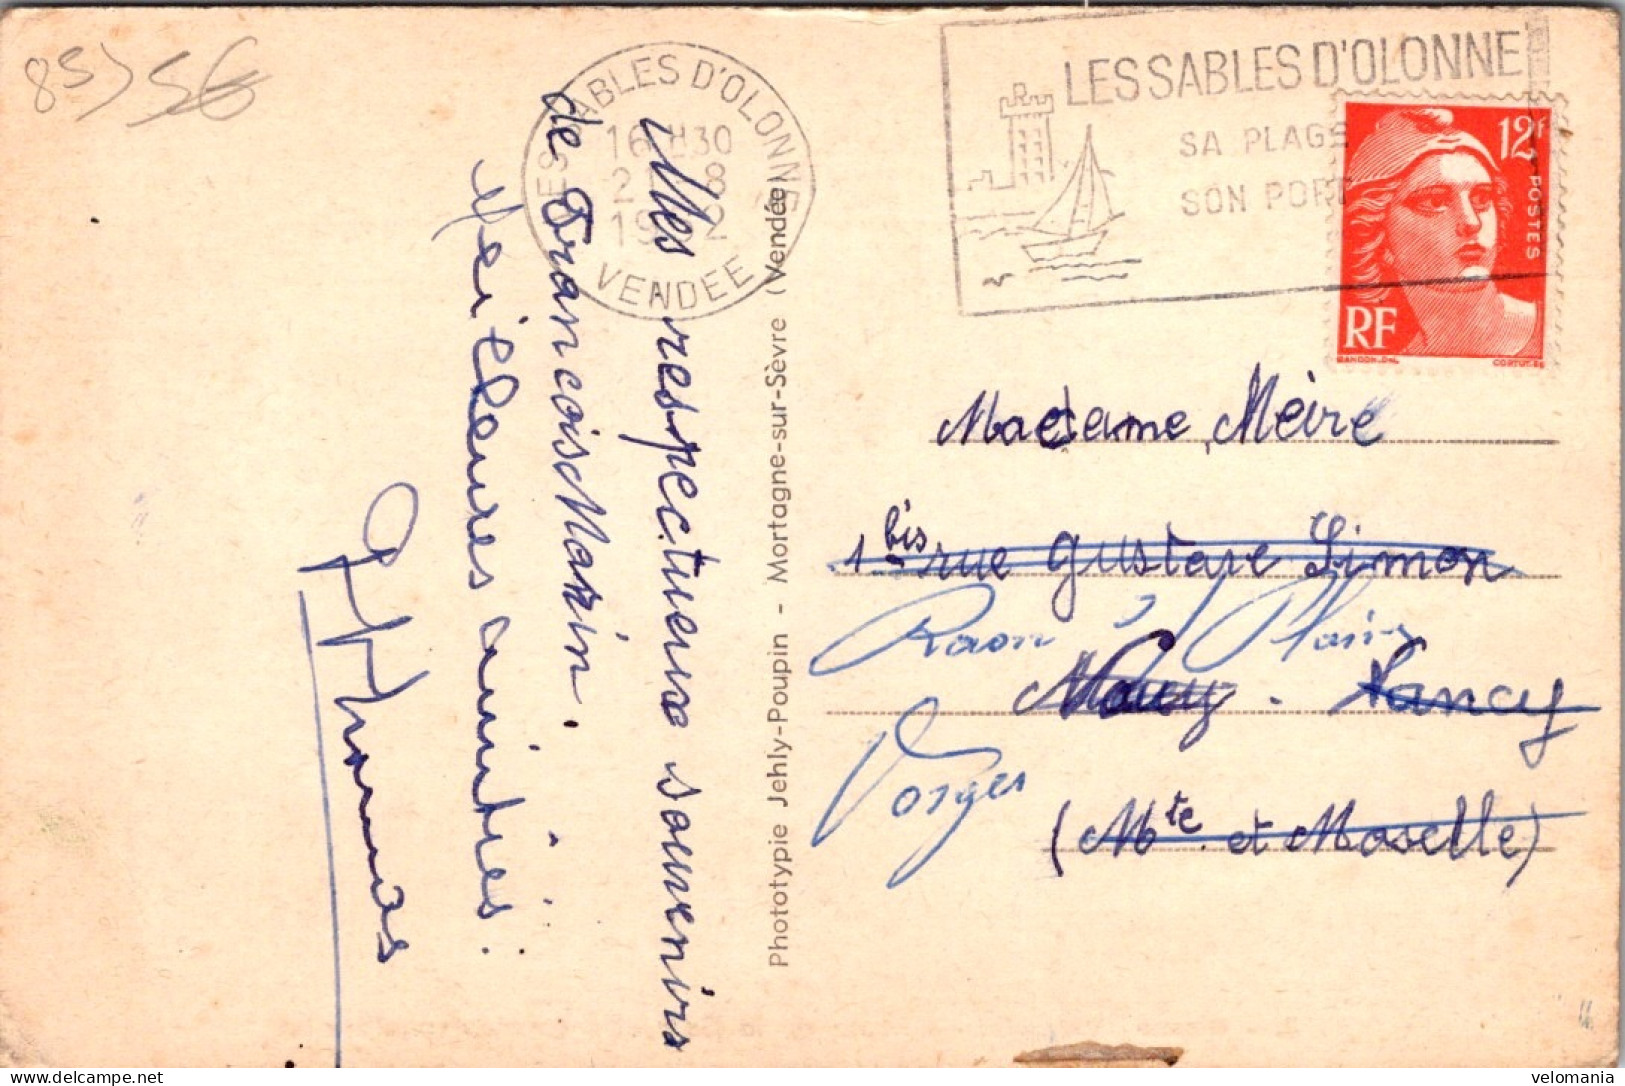 85
56
LES SABLES D'OLONNE
16H30
8
VENDEE
LES SABLES D'OLONNE
SA PLAGE
SON PORT
12F
POSTES
RF
GANDON.DEL
CORTOT.SC
Mes respectueux souvenirs
de Francois Marin.
Meilleures amitiés.
Phototypie Jehly-Poupin - Mortagne-sur-Sèvre (Vendée
Madame Méire
1 bis rue Gustave Simon
Raon Plaine
Nancy
Vosges
(Mte et Moselle)
velomania